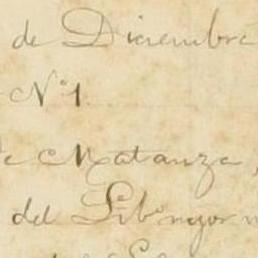 de Diciembre
Nº 1
de Matanza,
del Lib.º mayor